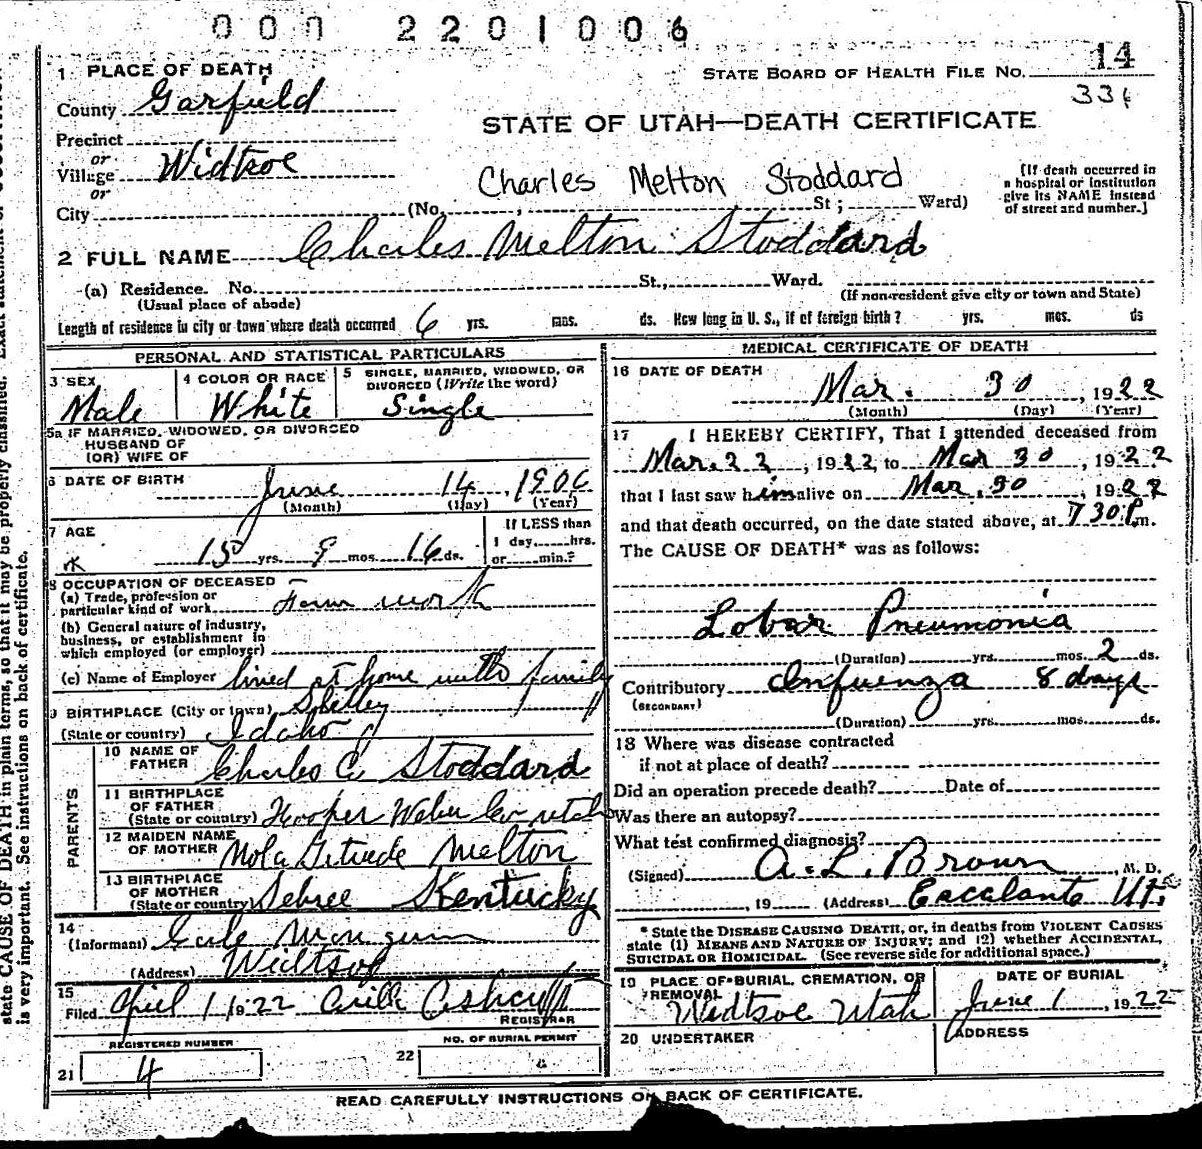 000 2201006
14
STATE BOARD OF HEALTH FILE No.
336
1 PLACE OF DEATH
County Garfield
STATE OF UTAH—DEATH CERTIFICATE
Precinct
or
Village Widtsoe
or
Charles Melton Stoddard
[If death occurred in
a hospital or institution
give its NAME instead
of street and number.]
City (No. , St; Ward)
2 FULL NAME Charles Melton Stoddard
(a) Residence. No. St., Ward.
(Usual place of abode) (If non-resident give city or town and State)
Length of residence in city or town where death occurred 6 yrs. mos. ds. How long in U. S., if of foreign birth? yrs. mos. ds
PERSONAL AND STATISTICAL PARTICULARS
3 SEX
Male
4 COLOR OR RACE
White
5 SINGLE, MARRIED, WIDOWED, OR
DIVORCED (Write the word)
Single
5a IF MARRIED, WIDOWED, OR DIVORCED
HUSBAND OF
(OR) WIFE OF
6 DATE OF BIRTH June 14, 1906
(Month) (Day) (Year)
7 AGE
15 yrs. 9 mos. 16 ds.
If LESS than
1 day, hrs.
or min.?
8 OCCUPATION OF DECEASED
(a) Trade, profession or
particular kind of work Farm work
(b) General nature of industry,
business, or establishment in
which employed (or employer)
(c) Name of Employer lived at home with family
9 BIRTHPLACE (City or town) Shelley
(State or country) Idaho
PARENTS
10 NAME OF
FATHER Charles C. Stoddard
11 BIRTHPLACE
OF FATHER
(State or country) Hooper Weber Co Utah
12 MAIDEN NAME
OF MOTHER Nola Getrude Melton
13 BIRTHPLACE
OF MOTHER
(State or country) Sebree Kentucky
14
(Informant)
(Address) Widtsoe
15
Filed April 1 1922 Ashcroft
REGISTRAR
REGISTERED NUMBER
21 4
NO. OF BURIAL PERMIT
22 4
MEDICAL CERTIFICATE OF DEATH
16 DATE OF DEATH
Mar. 30, 1922
(Month) (Day) (Year)
17 I HEREBY CERTIFY, That I attended deceased from
Mar. 22, 1922, to Mar 30, 1922
that I last saw him alive on Mar. 30, 1922
and that death occurred, on the date stated above, at 730 P.m.
The CAUSE OF DEATH* was as follows:
Lobar Pneumonia
(Duration) yrs. mos. 2 ds.
Contributory Infuenza 8 days
(SECONDARY)
(Duration) yrs. mos. ds.
18 Where was disease contracted
if not at place of death?
Did an operation precede death? Date of
Was there an autopsy?
What test confirmed diagnosis?
(Signed) A. L. Brown, M. D.
, 19 (Address) Escalante Ut.
* State the DISEASE CAUSING DEATH, or, in deaths from VIOLENT CAUSES
state (1) MEANS AND NATURE OF INJURY; and (2) whether ACCIDENTAL,
SUICIDAL OR HOMICIDAL. (See reverse side for additional space.)
19 PLACE OF BURIAL, CREMATION, OR
REMOVAL
Widtsoe Utah
DATE OF BURIAL
June 1, 1922
20 UNDERTAKER
ADDRESS
READ CAREFULLY INSTRUCTIONS ON BACK OF CERTIFICATE.
state CAUSE OF DEATH in plain terms, so that it may be properly classified. Exact statement of
is very important. See instructions on back of certificate.